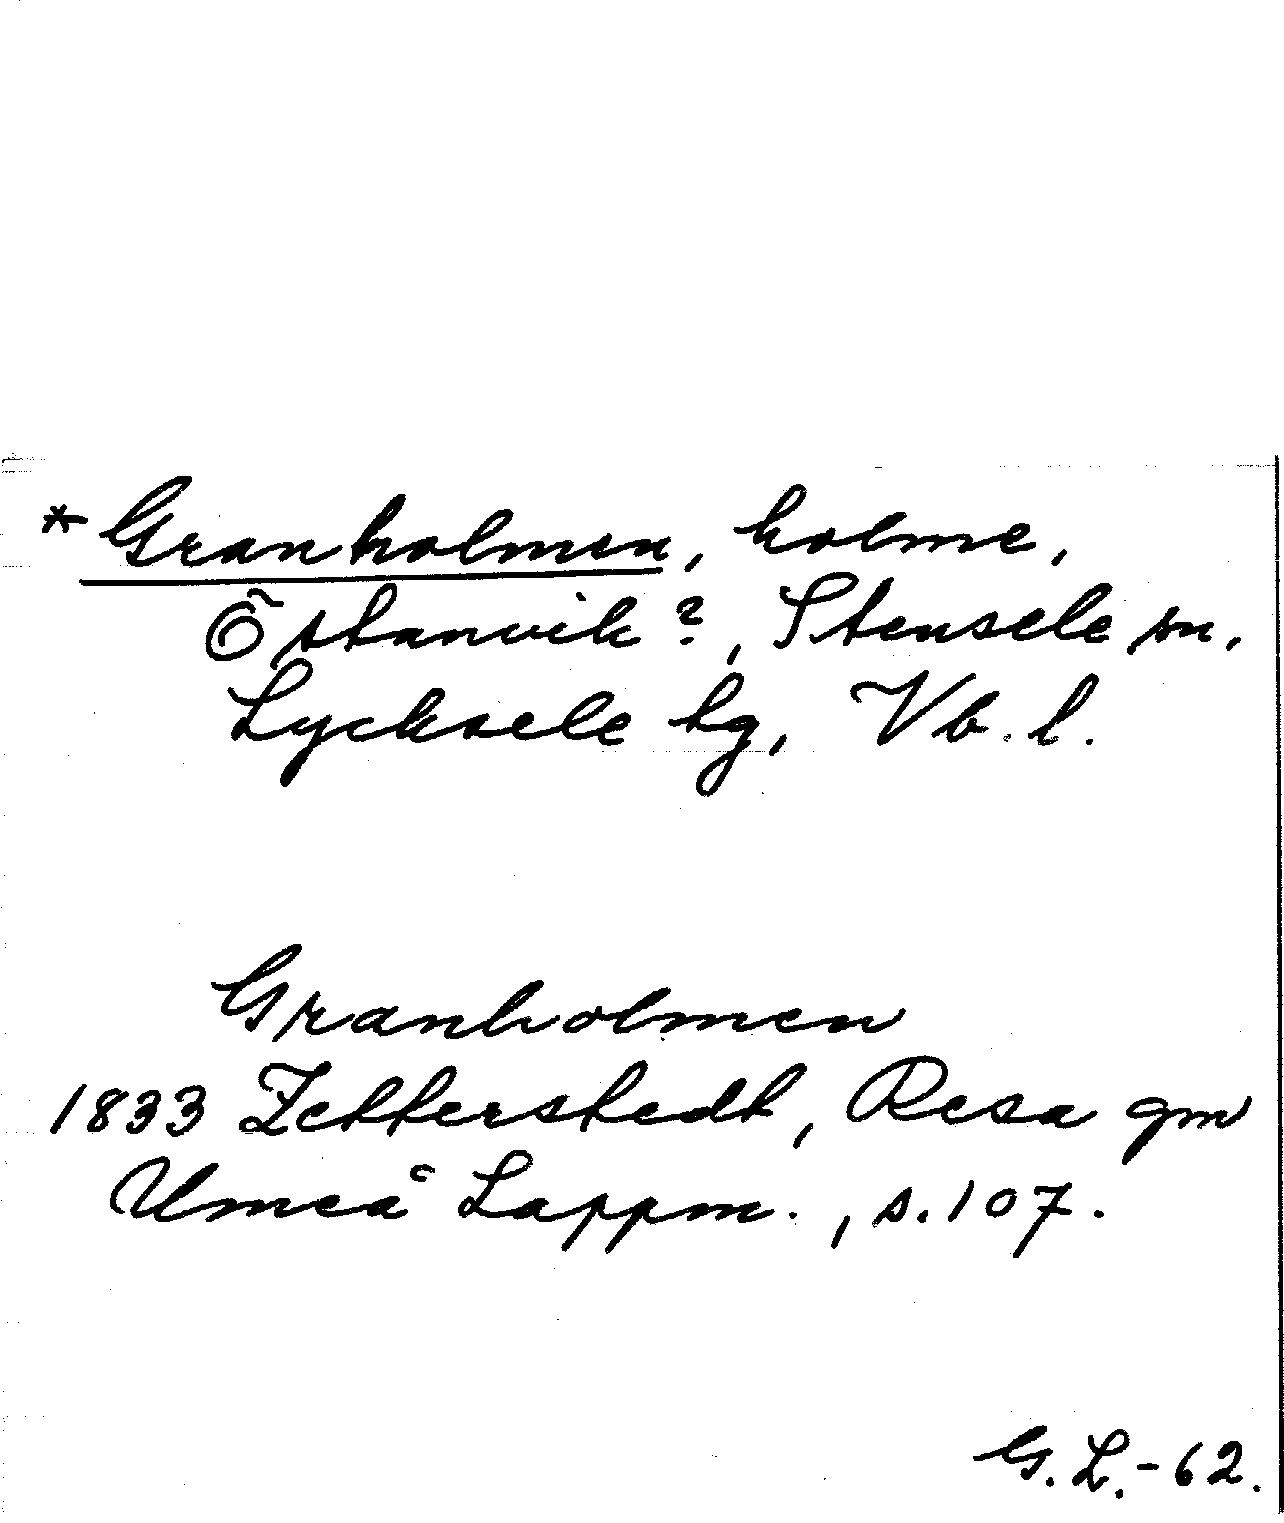 * Granholmen, holme,
Östanvik?, Stensele sn,
Lycksele lg, Vb. l.
Granholmen
1833 Zetterstedt, Resa gm
Umeå Lappm., s. 107.
G. L. - 62.